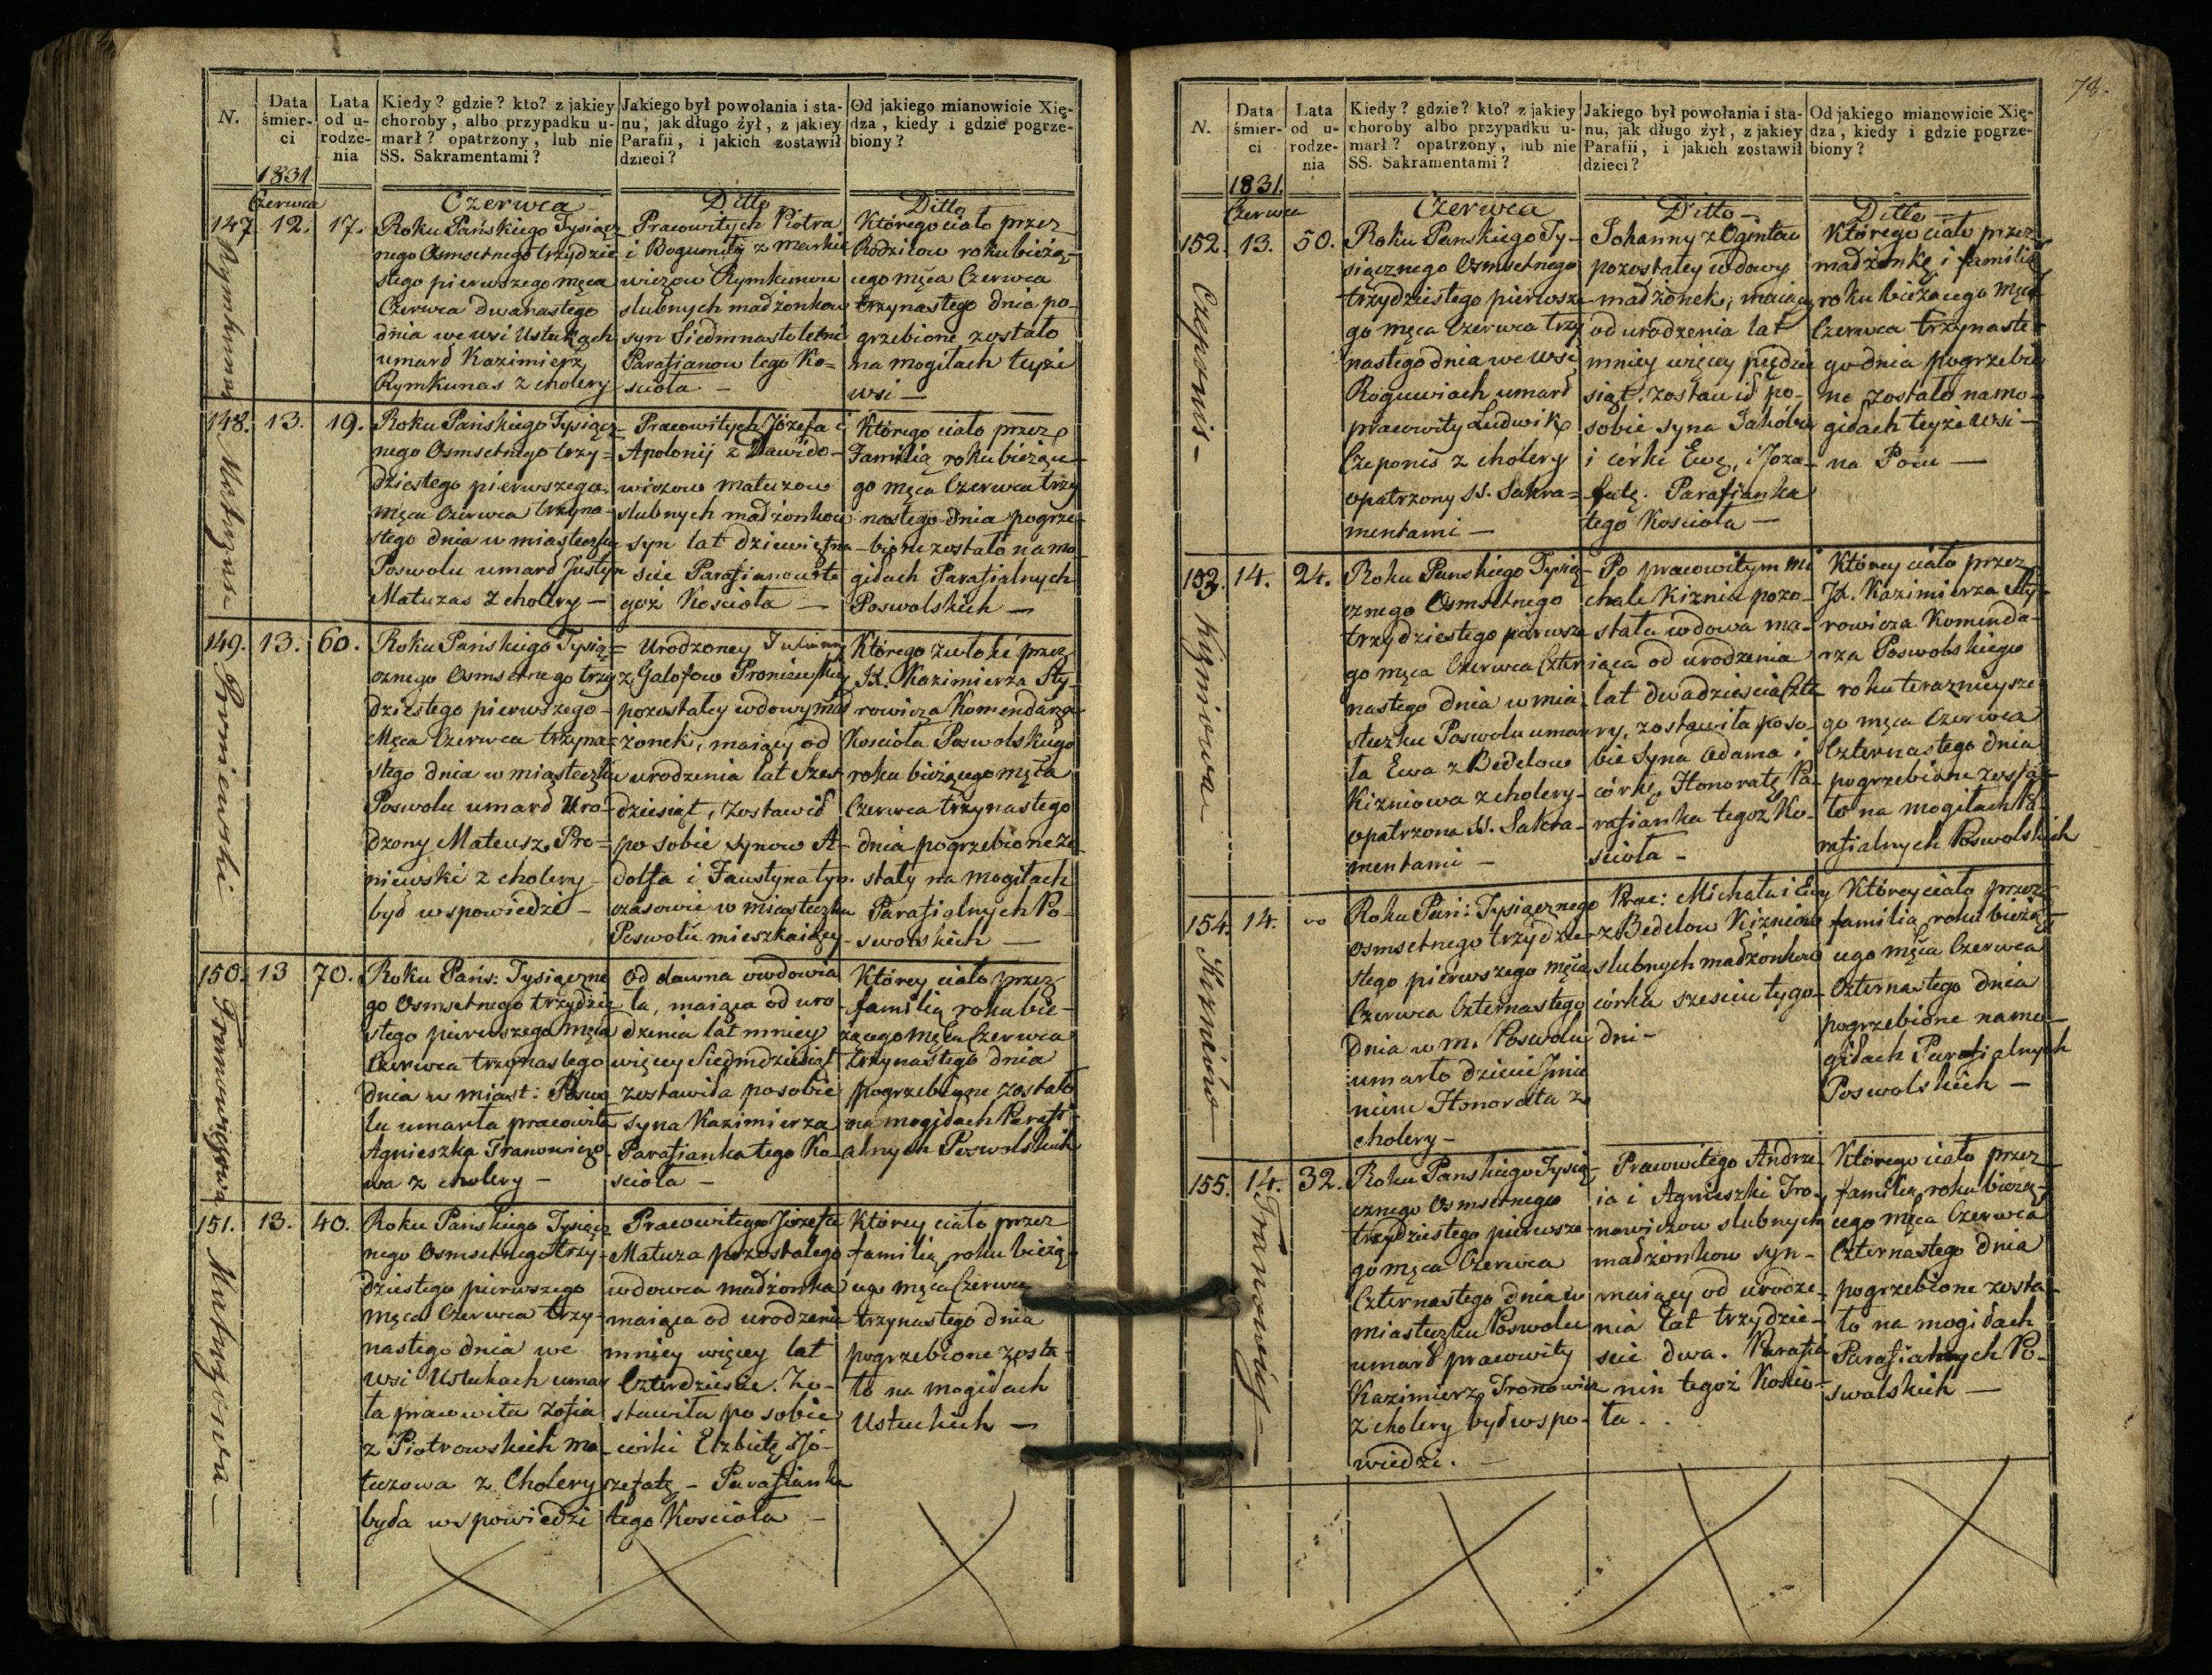 N.
Data
śmier-
ci
1831
Lata
od u-
rodze-
nia
Kiedy? gdzie? kto? z jakiey
choroby, albo przypadku u-
marł? opatrzony, lub nie
SS. Sakramentami?
Jakiego był powołania i sta-
nu, jak długo żył, z jakiey
Parafii, i jakich zostawił
dzieci?
Od jakiego mianowicie Xię-
dza, kiedy i gdzie pogrze-
biony?
Czerwca
Czerwca
Ditto
Ditto
147.
Rymkunas
12.
17.
Roku Pańskiego Tysiącz
nego Osmsetnego trzydzie
stego pierwszego męca
Czerwca dwanastego
dnia we wsi Ustukach
umarł Kazimierz
Rymkunas z cholery
Pracowitych Piotra
i Bogumiły z Markie
wiczow Rymkunow
slubnych madżonkow
syn Siedmnasto letni
Parafianow tego Ko=
scioła –
Którego ciało przez
Rodzicow roku bieżą-
cego męca Czerwca
trzynastego dnia po-
grzebione zostało
na mogiłach teyże
wsi –
148.
Matuzas
13.
19.
Roku Pańskiego Tysiącz
nego Osmsetnego trzy=
dziestego pierwszego
męca Czerwca trzyna-
stego dnia w miasteczku
Poswolu umarł Justyn
Matuzas z cholery –
Pracowitych Józefa i
Apolonij z Dawido-
wiczow Matuzow
slubnych madżonkow
syn lat dziewiętna-
scie Parafianow te
goż Kościoła –
Którego ciało przez
Familią roku bieżące-
go męca Czerwca trzy
nastego dnia pogrze-
bione zostało na mo
giłach Parafialnych
Poswolskich –
149.
Proniewski
13.
60.
Roku Pańskiego Tysią=
cznego Osmsetnego trzy
dziestego pierwszego-
Męca Czerwca trzyna=
stego dnia w miasteczku
Poswolu umarł Uro-
dzony Mateusz Pro=
niewski z cholery
był w spowiedzi –
Urodzoney Julianny
z Galofow Proniewskiey
pozostałey wdowy mał
żonek, maiący od
urodzenia lat Szes-
dziesiąt, zostawił
po sobie synow A-
dolfa i Faustyna tym
czasowie w miasteczku
Poswolu mieszkaiący
Którego zwłoki przez
JX. Kazimierza Sty-
rowicza Komendarza
Kościoła Poswolskiego
roku bieżącego męca
Czerwca trzynastego
dnia pogrzebione zo
stały na mogiłach
Parafialnych Po-
swolskich –
150.
Tranowiczowa
13
70.
Roku Pańs: Tysiączne
go Osmsetnego trzydzie
stego pierwszego męca
Czerwca trzynastego
dnia w miast: Poswo
lu umarła pracowita
Agnieszka Tranowiczo-
wa z cholery –
Od dawna owdowia
ła, maiąca od uro
dzenia lat mniey
więcey Siedmdziesiąt
zostawiła po sobie
syna Kazimierza
Parafianka tego Ko-
scioła –
Którey ciało przez
familią roku bie-
żącego męca Czerwca
trzynastego dnia
pogrzebione zostało
na mogiłach Parafi
alnych Poswolskich
151.
Matuzowa –
13.
40.
Roku Pańskiego Tysiącz
nego Osmsetnego trzy-
dziestego pierwszego
męca Czerwca trzy-
nastego dnia we
wsi Ustukach umar
ła pracowita Zofia
z Piotrowskich Ma-
tuzowa z Cholery
była w spowiedzi
Pracowitego Józefa
Matuza pozostałego
wdowca madżonka
maiąca od urodzenia
mniey więcey lat
Czterdziescie. Zo-
stawiła po sobie
córki Elzbietę i Jó-
zefatę – Parafianka
tego Kościoła –
Którey ciało przez
familią roku bieżą-
cego męca Czerwca
trzynastego dnia
pogrzebione zosta-
ło na mogiłach
Ustuckich –
78.
N.
Data
śmier-
ci
1831.
Lata
od u-
rodze-
nia
Kiedy? gdzie? kto? z jakiey
choroby albo przypadku u-
marł? opatrzony, lub nie
SS. Sakramentami?
Jakiego był powołania i sta-
nu, jak długo żył, z jakiey
Parafii, i jakich zostawił
dzieci?
Od jakiego mianowicie Xię-
dza, kiedy i gdzie pogrze-
biony?
Czerwca
Czerwca
Ditto –
Ditto –
152.
Czeponis –
13.
50.
Roku Panskiego Ty-
siącznego Osmsetnego
trzydziestego pierwsze-
go męca Czerwca trzy
nastego dnia we wsi
Roguwiach umarł
pracowity Ludwik
Czeponis z cholery
opatrzony SS. Sakra=
mentami –
Johanny z Ogintow
pozostałey wdowy
madżonek, maiący
od urodzenia lat
mniey więcey pięćdzie
siąt. zostawił po-
sobie syna Jakóba
i córki Ewę, i Joza-
fatę. Parafianka
tego Kościoła –
Którego ciało przez
madżonkę i familią
roku bieżącego męca
Czerwca trzynaste-
go dnia pogrzebio
ne zostało na mo-
giłach teyże wsi –
na Polu –
153.
Kizniowa –
14.
24.
Roku Panskiego Tysią-
cznego Osmsetnego
trzydziestego pierwsze
go męca Czerwca Czter
nastego dnia w mia-
steczku Poswolu umar
ła Ewa z Bedelow
Kizniowa z cholery-
opatrzona SS. Sakra-
mentami –
Po pracowitym Mi
chale Kizniu pozo-
stała wdowa ma-
iąca od urodzenia
lat dwadziescia Czte
ry, zostawiła po so
bie Syna Adama i
córkę Honoratę Pa-
rafianka tegoż Ko-
scioła –
Którey ciało przez
JX. Kazimierza Sty-
rowicza Komenda-
rza Poswolskiego
roku teraznieysze
go męca Czerwca
Czternastego dnia
pogrzebione zosta-
ło na mogiłach Pa-
rafialnych Poswolskich
154.
14.
Roku Pań: Tysiącznego
osmsetnego trzydzie-
stego pierwszego męca
Czerwca Czternastego
dnia w m. Poswolu
umarło dziecie Imie
niem Honorata z
cholery –
Prac: Michała i Ewy
z Bedelow Kizniow
slubnych madżonkow
córka szesciu tygo-
dni –
Którey ciało przez
familią roku bieżą-
cego męca Czerwca
Czternastego dnia
pogrzebione na mo-
giłach Parafialnych
Poswolskich –
155.
Tranowicz –
14.
32.
Roku Panskiego Tysią-
cznego Osmsetnego
trzydziestego pierwsze-
go męca Czerwca
Czternastego dnia w
miasteczku Poswolu
umarł pracowity
Kazimierz Tronowicz
z cholery był w spo-
wiedzi. –
Pracowitego Andrze
ia i Agnieszki Tro-
nowiczow slubnych
madżonkow syn-
maiący od urodze-
nia lat trzydzie-
scie dwa. Parafia
nin tegoż Koscio-
ła.
Którego ciało przez
familią roku bieżą-
cego męca Czerwca
Czternastego dnia
pogrzebione zosta-
ło na mogiłach
Parafialnych Po-
swolskich –